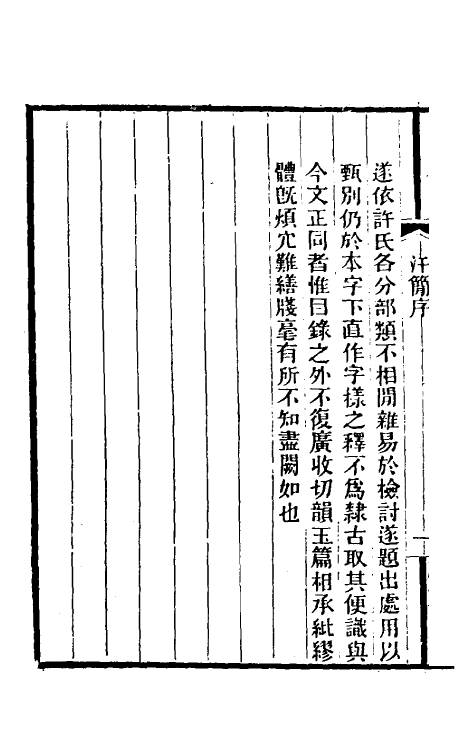 汗簡序
遂依許氏各分部類不相閒雜易於檢討遂題出處用以
甄別仍於本字下直作字樣之釋不爲隸古取其便識與
今文正同者惟目錄之外不復廣收切韻玉篇相承紕繆
體旣煩冗難繕牋毫有所不知盡闕如也